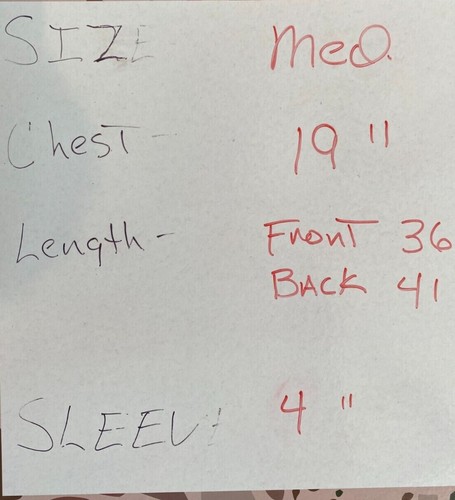 SIZE Med.
Chest - 19 "
Length - Front 36
Back 41
SLEEVE 4 "